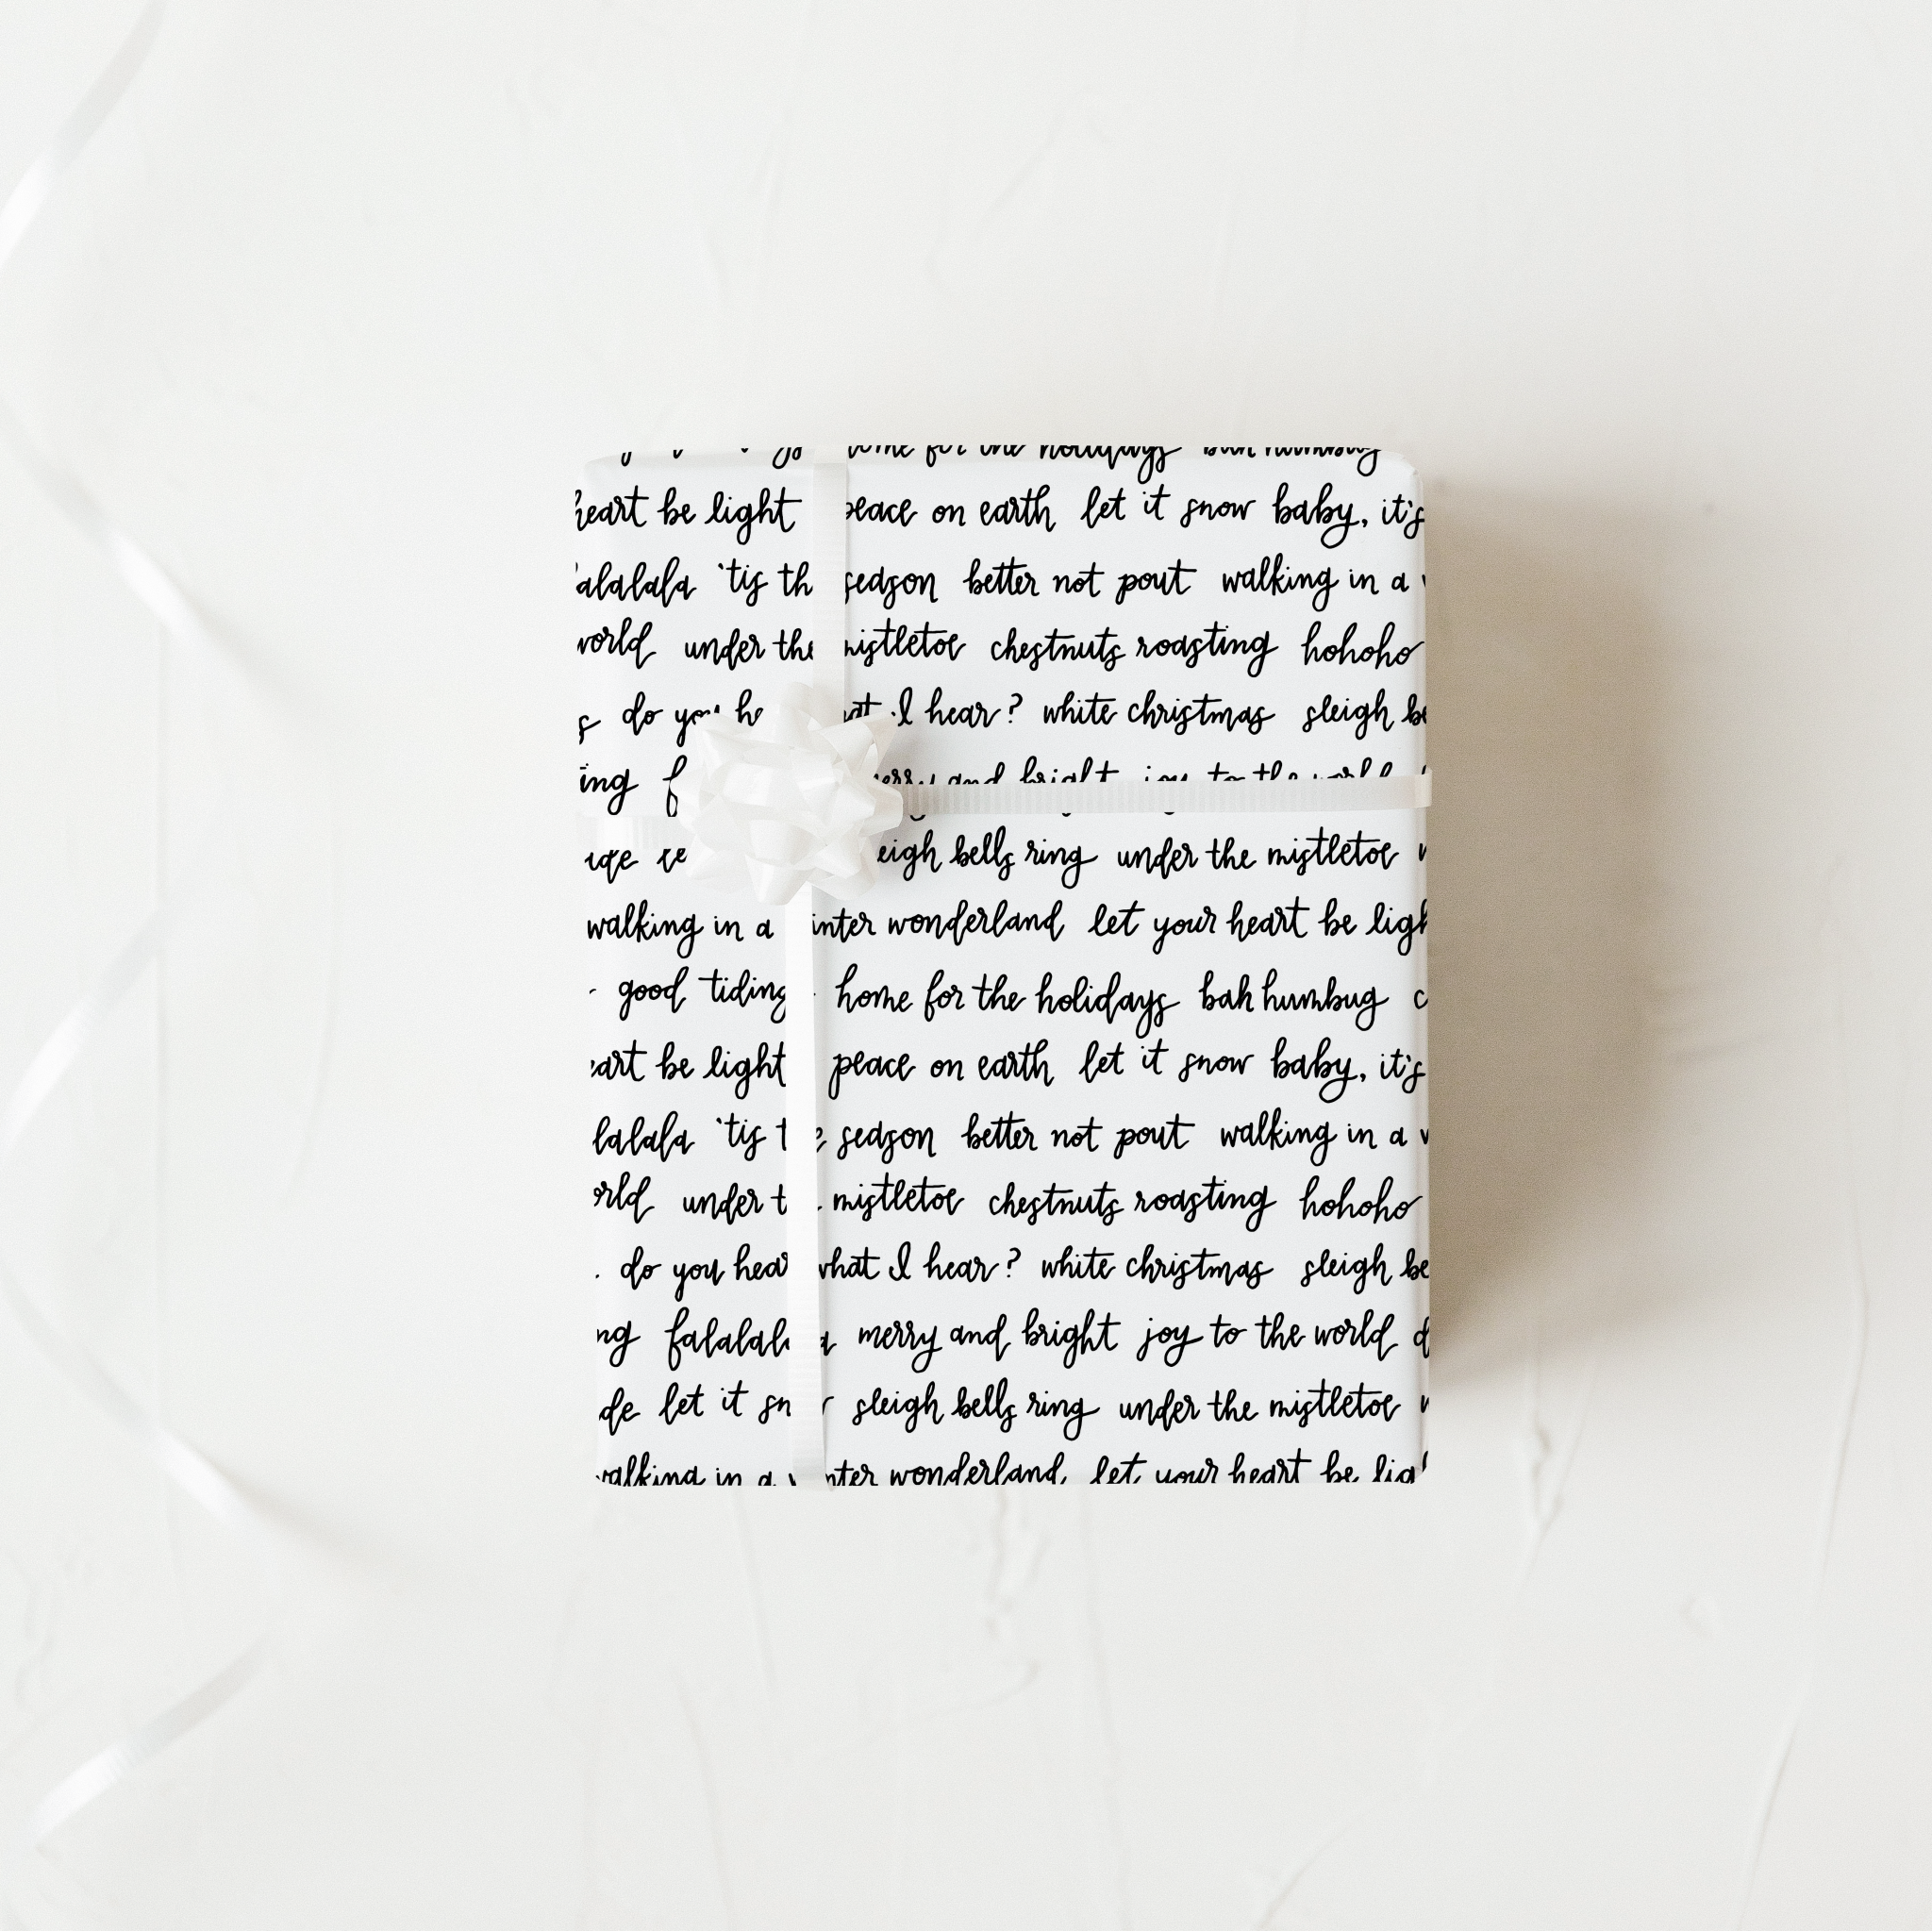 home for the holidays bah humbug
heart be light peace on earth let it snow baby, it's
alalala 'tis th season better not pout walking in a
world under the mistletoe chestnuts roasting hohoho
do you I hear? white christmas sleigh be
ing merry and bright joy to the world
eigh bells ring under the mistletoe
walking in a inter wonderland let your heart be ligh
good tiding home for the holidays bah humbug c
eart be light peace on earth let it snow baby, it's
lalala 'tis t season better not pout walking in a
orld under t mistletoe chestnuts roasting hohoho
do you hear what I hear? white christmas sleigh be
ng falalala merry and bright joy to the world d
de let it sn sleigh bells ring under the mistletoe
walking in a nter wonderland let your heart be lig